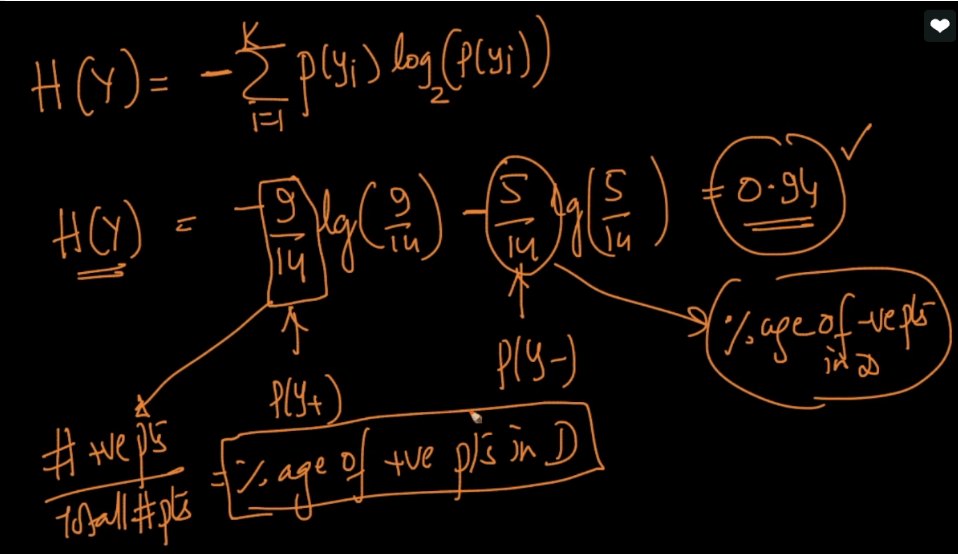 H(Y) = - K Σ i=1 p(yi) log2(p(yi))
H(Y) = - 9/14 lg(9/14) - 5/14 lg(5/14) = 0.94 ✓
%age of -ve pts
in D
P(Y+) P(Y-)
# +ve pts / Total # pts = %age of +ve pts in D